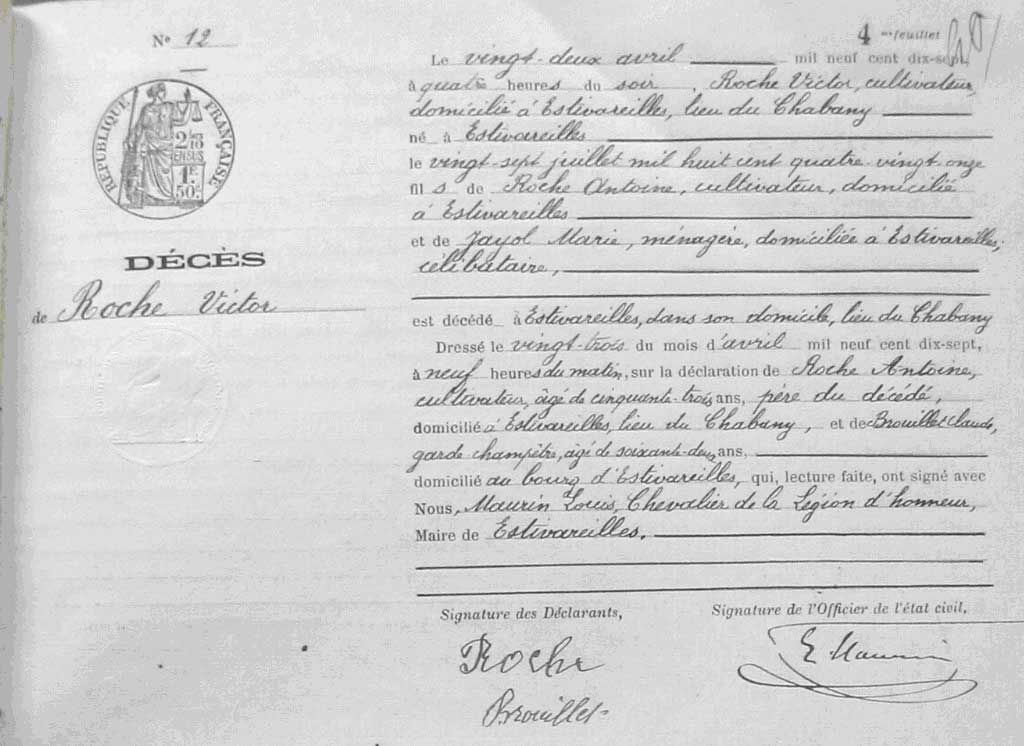 N° 12
4 me feuillet
Le vingt-deux avril mil neuf cent dix-sept,
à quatre heures du soir, Roche Victor, cultivateur,
domicilié à Estivareilles, lieu du Chabany
né à Estivareilles
le vingt-sept juillet mil huit cent quatre-vingt-onze
fils de Roche Antoine, cultivateur, domicilié
à Estivareilles
et de Jayol Marie, ménagère, domiciliée à Estivareilles,
célibataire,
RÉPUBLIQUE FRANÇAISE
2/10
EN SUS
1F
50c
DÉCÈS
de Roche Victor
est décédé à Estivareilles, dans son domicile, lieu du Chabany
Dressé le vingt-trois du mois d'avril mil neuf cent dix-sept,
à neuf heures du matin, sur la déclaration de Roche Antoine,
cultivateur, âgé de cinquante-trois ans, père du décédé,
domicilié à Estivareilles, lieu du Chabany, et de Brouillet Claude,
garde champêtre, âgé de soixante-deux ans,
domicilié au bourg d'Estivareilles, qui, lecture faite, ont signé avec
Nous, Maurin Louis, Chevalier de la Légion d'honneur,
Maire de Estivareilles.
Signature des Déclarants,
Signature de l'Officier de l'état civil,
Roche
L. Maurin
Brouillet